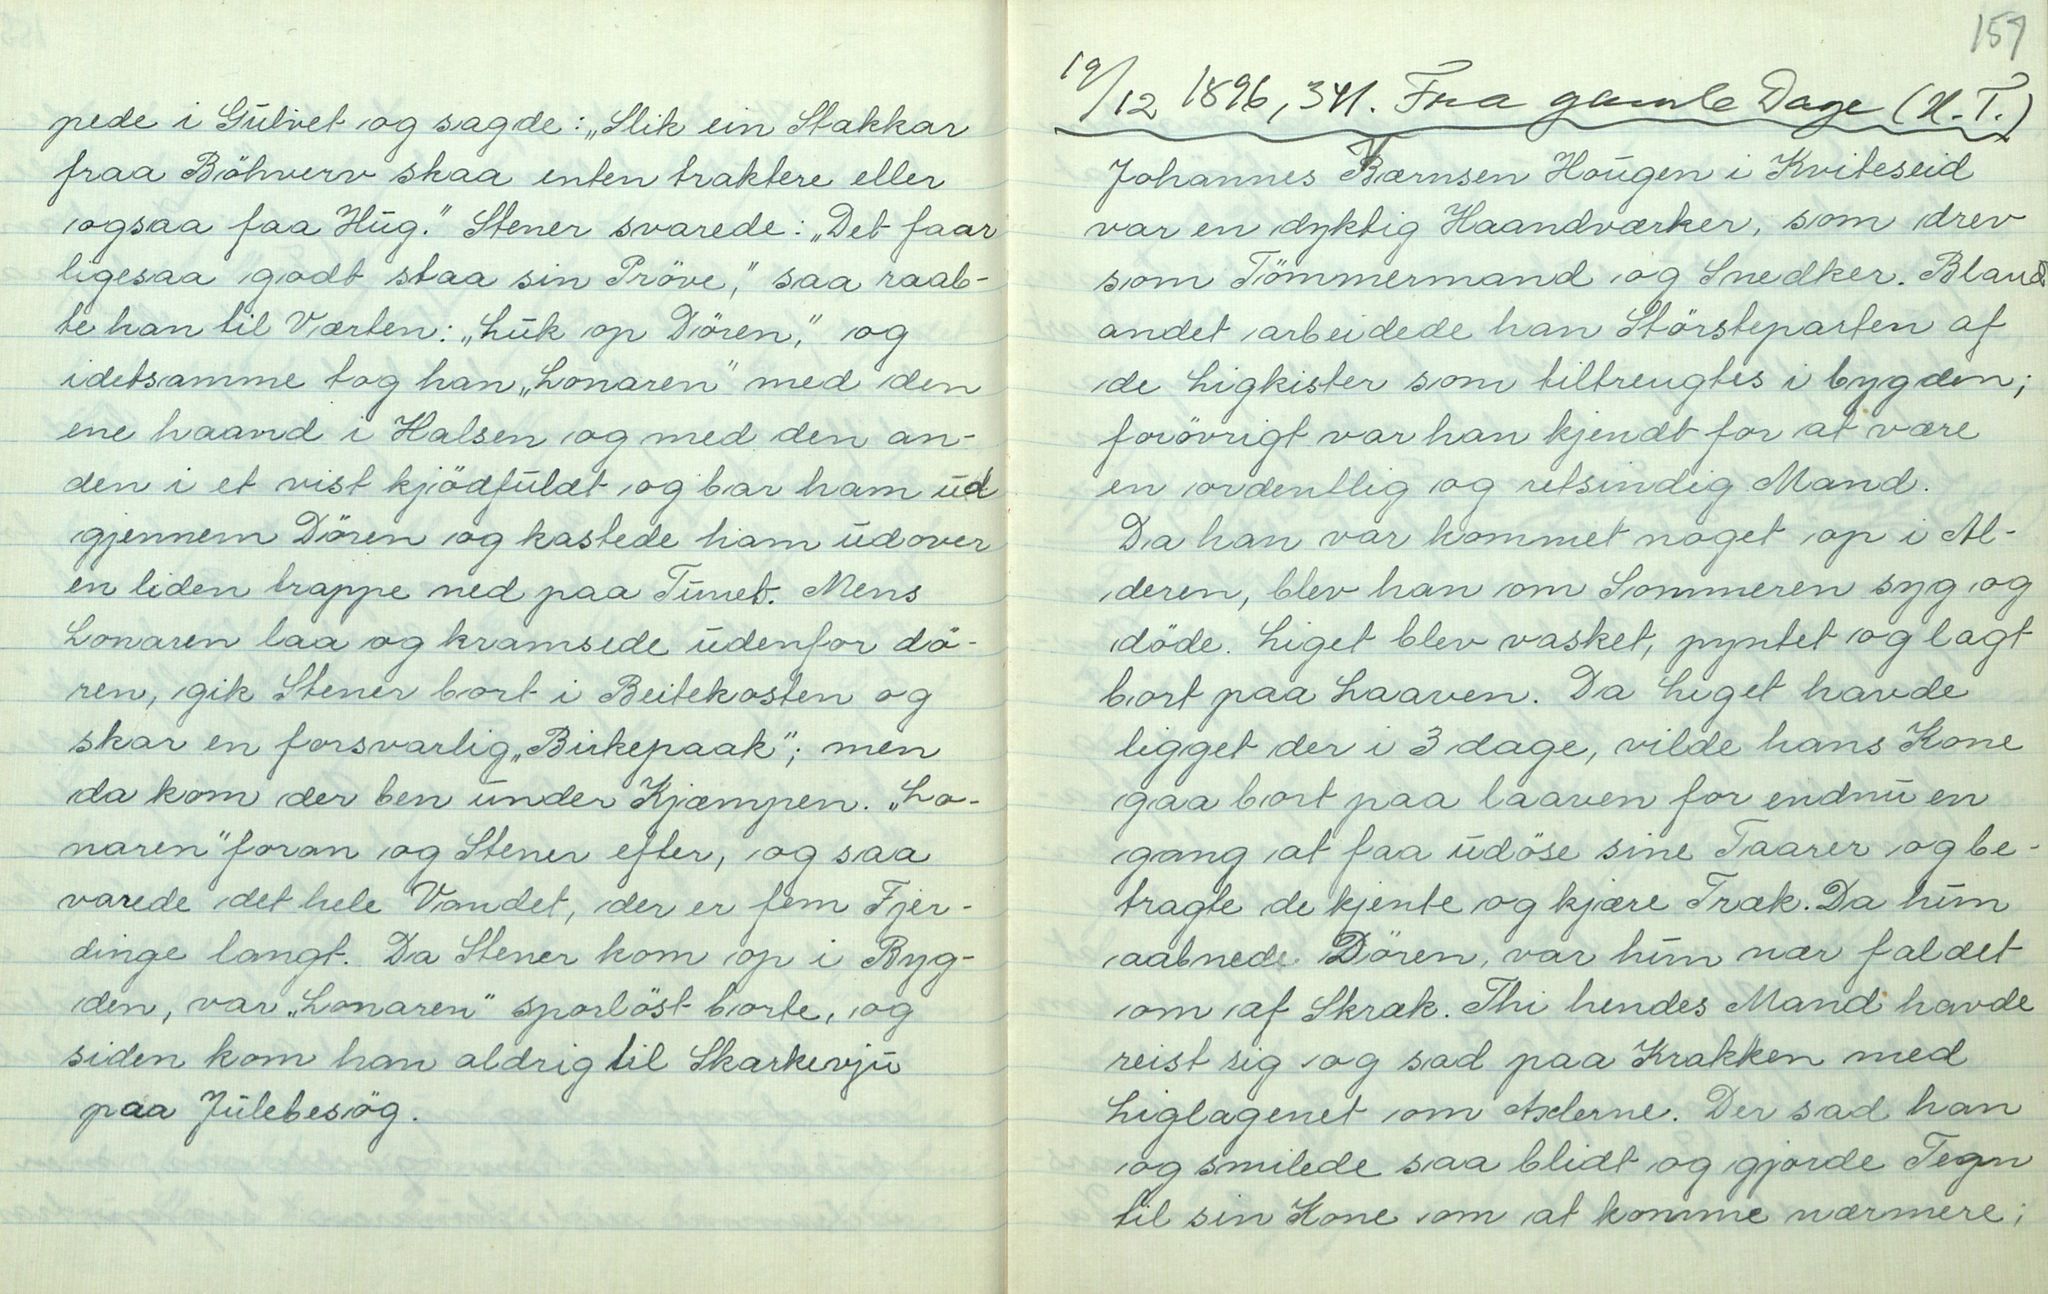 pede i Gulvet og sagde: „Slik ein Stakkar
fraa Böhverv skaa enten traktere eller
ogsaa faa Hug." Stener svarede: „Det faar
ligesaa godt staa sin Pröve," saa raab-
te han til Værten: „Luk op Dören," og
idetsamme tog han „Lonaren" med den
ene haand i Halsen og med den an-
den i et vist kjödfuldt og bar ham ud
gjennem Dören og kastede ham udover
en liden trappe ned paa Tunet. Mens
Lonaren laa og kramsede udenfor dö-
ren, gik Stener bort i Beitekosten og
skar en forsvarlig „Birkepaak"; men
da kom der ben under Kjæmpen. „Lo-
naren" foran og Stener efter, og saa
varede det hele Vandet, der er fem Fjer-
dinge langt. Da Stener kom op i Byg-
den, var „Lonaren" sporlöst borte, og
siden kom han aldrig til Skarkevju
paa Julebesög.
157
19/12 1896, 341. Fra gamle Dage (H. T.)
Johannes Bærnsen Hougen i Kviteseid
var en dyktig Haandværker, som drev
som Tömmermand og Snedker. Bland
andet arbeidede han Störsteparten af
de Ligkister som tiltrengtes i bygden;
forövrigt var han kjendt for at være
en ordentlig og retsindig Mand.
Da han var kommet noget op i Al-
deren, blev han om Sommeren syg og
döde. Liget blev vasket, pyntet og lagt
bort paa Laaven. Da Liget havde
ligget der i 3 dage, vilde hans Kone
gaa bort paa laaven for endnu en
gang at faa udöse sine Taarer og be-
tragte de kjente og kjære Træk. Da hun
aabnede Dören, var hun nær faldet
om af Skræk. Thi hendes Mand havde
reist sig og sad paa Krakken med
Liglagenet om Axlerne. Der sad han
og smilede saa blidt og gjorde Tegn
til sin Kone om at komme nærmere;